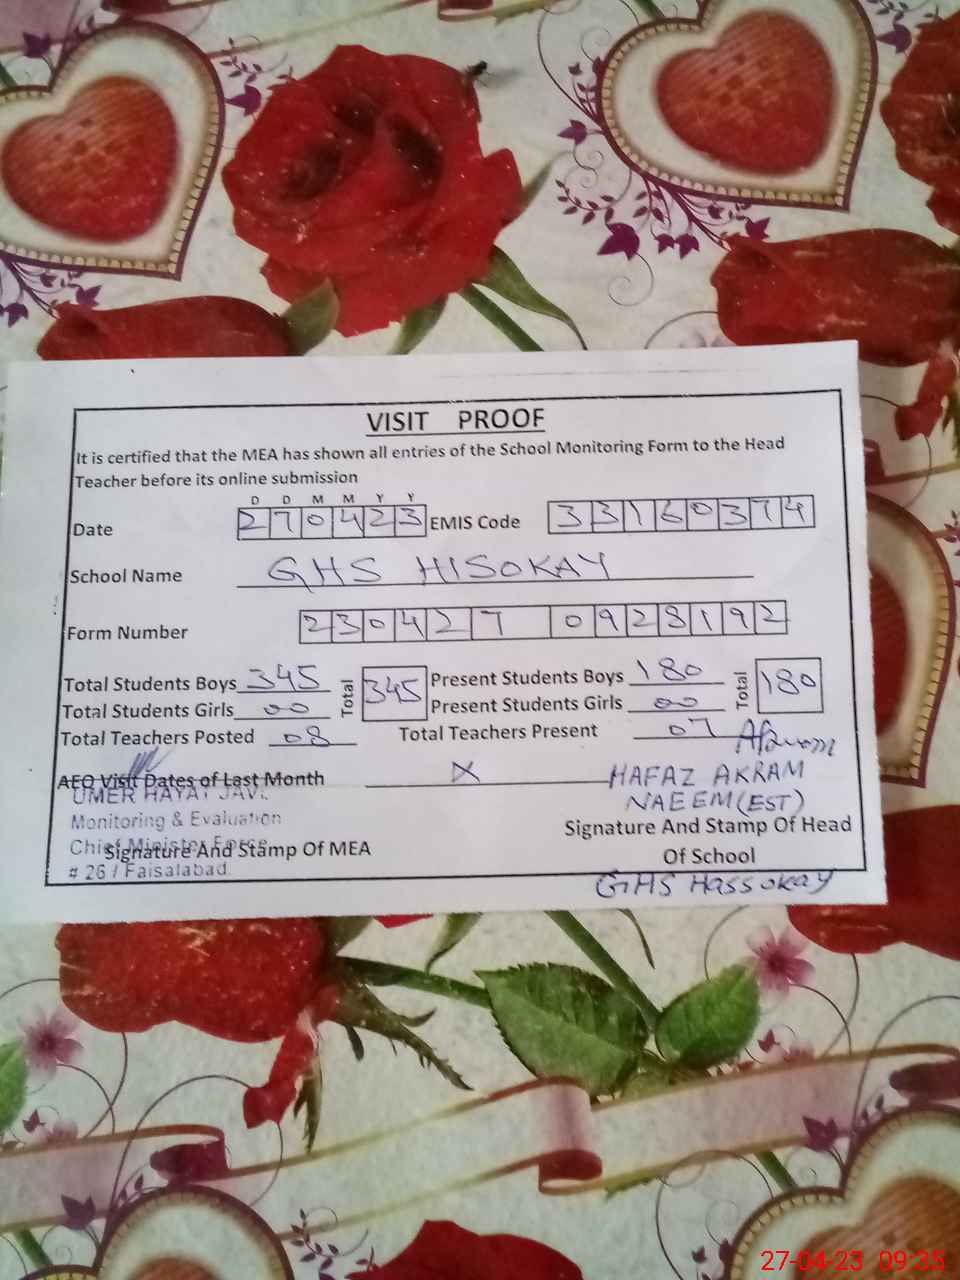 VISIT PROOF
It is certified that the MEA has shown all entries of the School Monitoring Form to the Head
Teacher before its online submission
D D M M Y Y
Date 270423 EMIS Code 33160374
School Name GHS HISOKAY
Form Number 230427 0928192
Total Students Boys 345 Total 345 Present Students Boys 180 Total 180
Total Students Girls 00 Present Students Girls 00
Total Teachers Posted 08 Total Teachers Present 07
AEO Visit Dates of Last Month X HAFAZ AKRAM
UMER HAYAT NAEEM(EST)
Monitoring & Evaluation Signature And Stamp Of Head
Chief Minister Force
Signature And Stamp Of MEA Of School
# 26 / Faisalabad GHS HassokAy
27-04-23 09:35